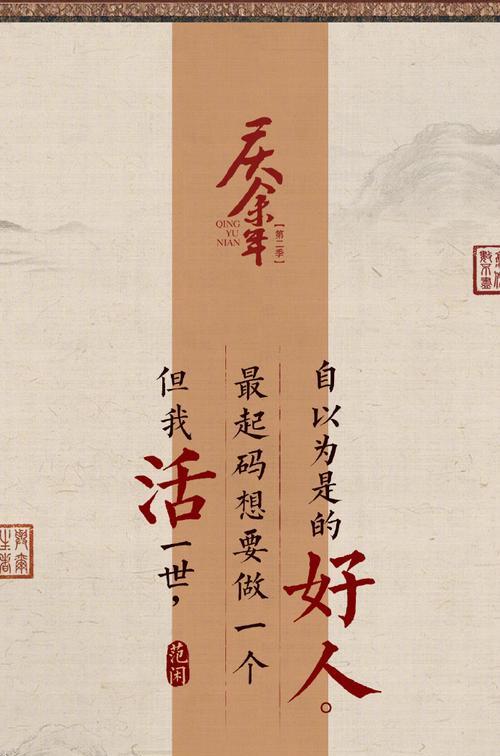 庆余年
QING
YU
NIAN
【第二季】
但我活一世,
最起码想要做一个
自以为是的好人。
范闲
數不盡